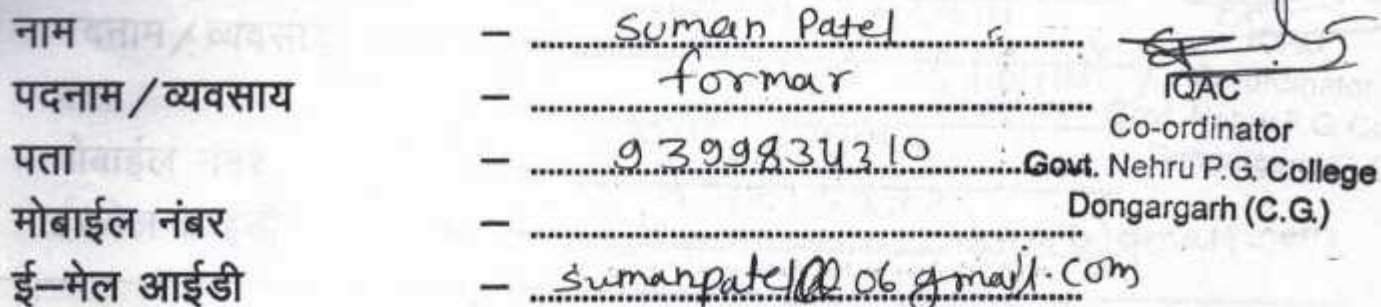 नाम – suman Patel
पदनाम / व्यवसाय – formar
पता – 9399834310
मोबाईल नंबर –
ई–मेल आईडी – sumanpatel@06gmail.com
IQAC
Co-ordinator
Govt. Nehru P.G. College
Dongargarh (C.G.)